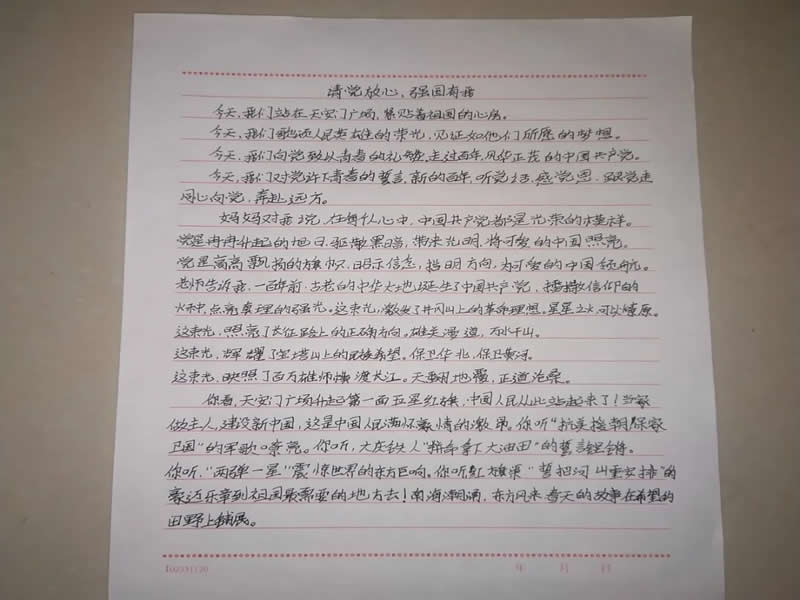 请党放心、强国有我
今天,我们站在天安门广场,紧贴着祖国的心房。
今天,我们歌颂人民英雄的荣光,见证如他们所愿的梦想。
今天,我们向党致以青春的礼赞,走过百年,风华正茂的中国共产党。
今天,我们对党许下青春的誓言,新的百年,听党话,感党恩,跟党走
同心向党,奔赴远方。
妈妈对我说,在每个人心中,中国共产党都是光荣的模样。
党是冉冉升起的旭日,驱散黑暗,带来光明,将可爱的中国照亮。
党是高高飘扬的旗帜,昭示信念,指明方向,为可爱的中国领航。
老师告诉我,一百年前,古老的中华大地,诞生了中国共产党,播撒信仰的
火种,点亮真理的强光。这束光,激发了井冈山上的革命理想。星星之火,可以燎原。
这束光,照亮了长征路上的正确方向。雄关漫道,万水千山。
这束光,辉耀了宝塔山上的民族希望。保卫华北,保卫黄河。
这束光,映照了百万雄师横渡大江。天翻地覆,正道沧桑。
你看,天安门广场升起第一面五星红旗,中国人民从此站起来了!当家
做主人,建设新中国,这是中国人民满怀豪情的激昂。你听"抗美援朝,保家
卫国"的军歌嘹亮。你听,大庆铁人"拼命拿下大油田"的誓言铿锵。
你听,"两弹一星"震惊世界的东方巨响。你听红旗渠"誓把河山重安排"的
豪迈乐章到祖国最需要的地方去!南海潮涌,东方风来春天的故事在希望的
田野上铺展。
年 月 日